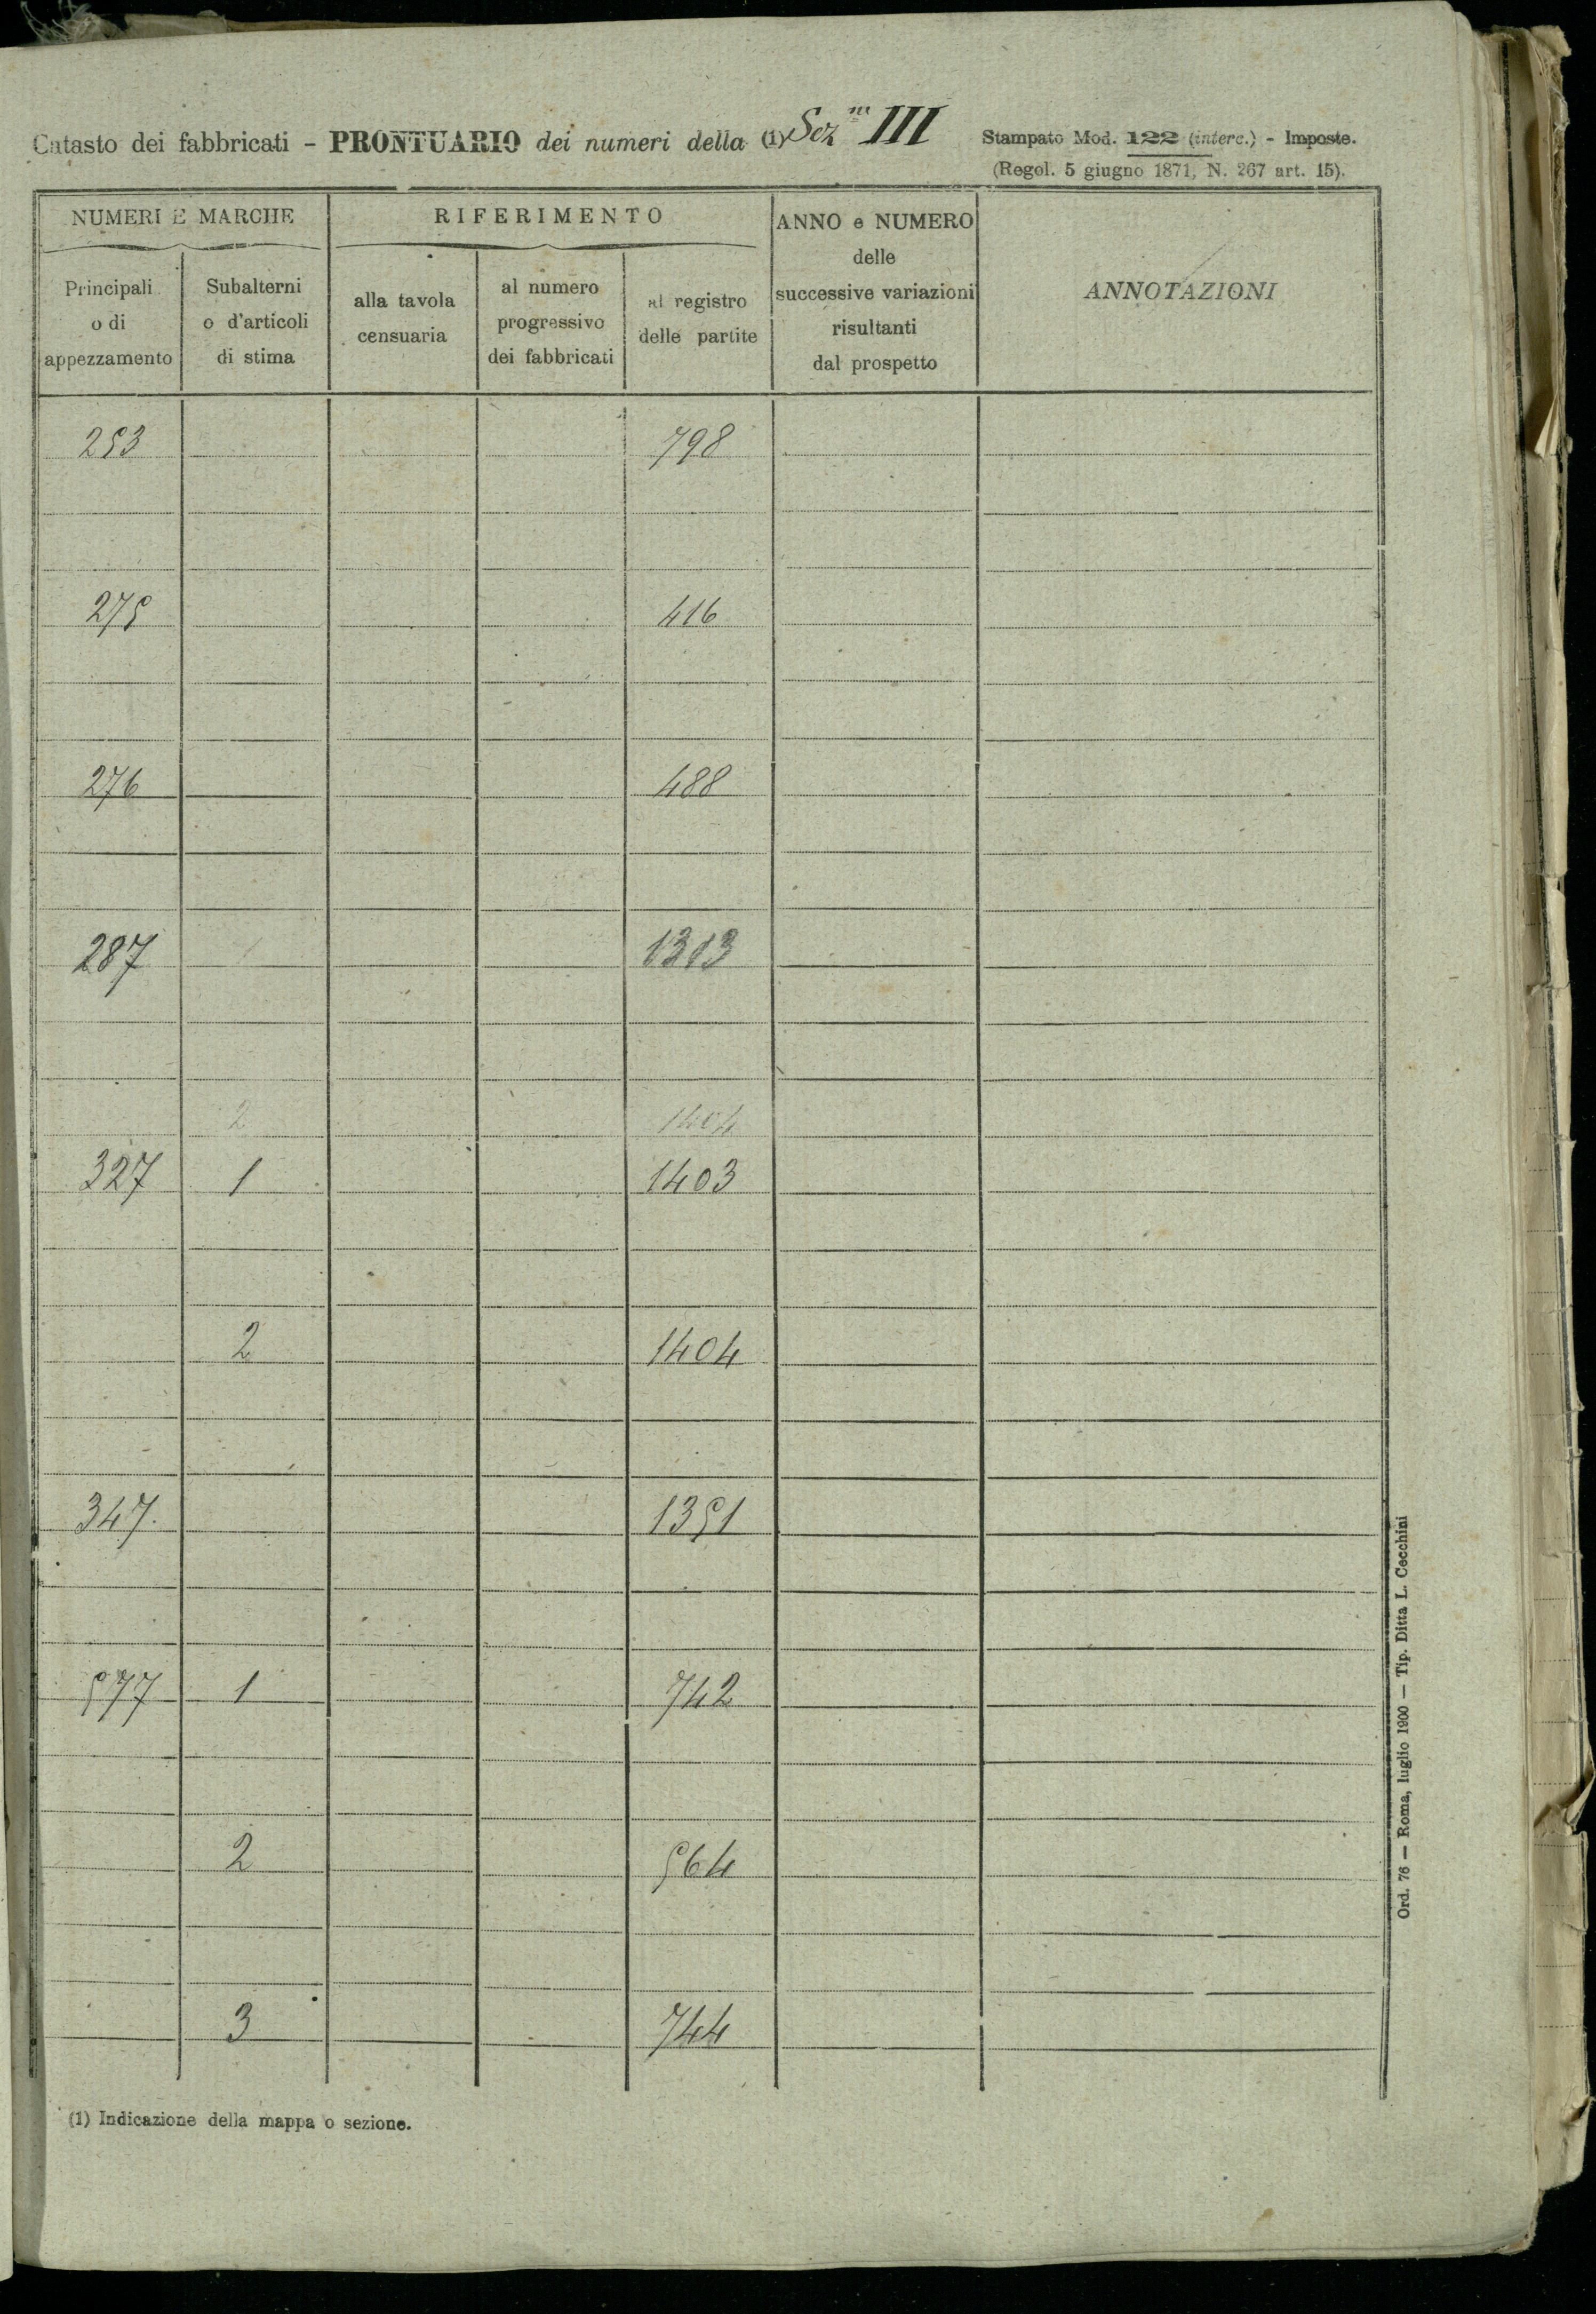 Catasto dei fabbricati - PRONTUARIO dei numeri della (1) Sez.ne III
Stampato Mod. 122 (interc.) - Imposte.
(Regol. 5 giugno 1871, N. 267 art. 15).
NUMERI E MARCHE
RIFERIMENTO
ANNO e NUMERO
delle
successive variazioni
risultanti
dal prospetto
ANNOTAZIONI
Principali
o di
appezzamento
Subalterni
o d'articoli
di stima
alla tavola
censuaria
al numero
progressivo
dei fabbricati
al registro
delle partite
253 798
275 416
276 488
287 1313
2 1404
327 1 1403
2 1404
347. 1351
577 1 742
2 564
3 744
(1) Indicazione della mappa o sezione.
Ord. 76 — Roma, luglio 1900 — Tip. Ditta L. Cecchini